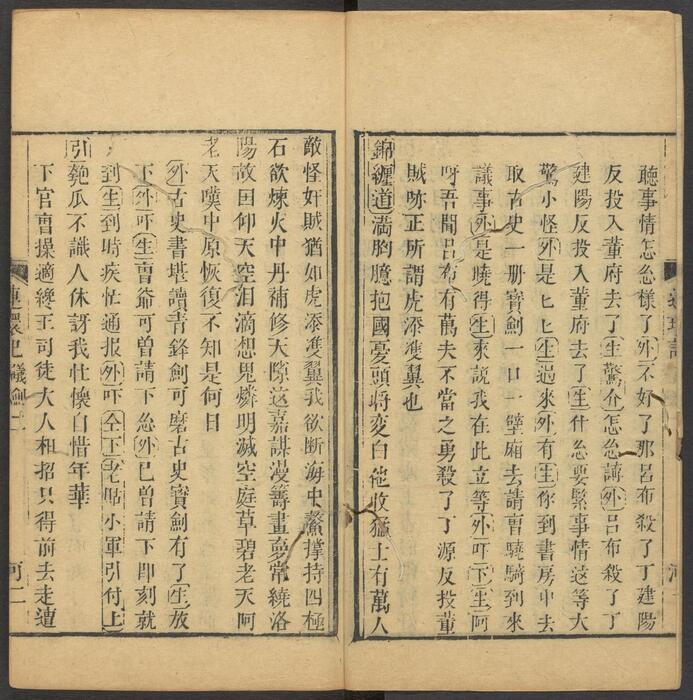 聽事情怎么樣了外不好了那呂布殺了丁建陽
反投入董府去了生驚介怎么講外呂布殺了丁
建陽反投入董府去了生什么要緊事情这等大
驚小怪外是匕匕生過來外有生你到書房中去
取古史一册寳劍一口一壁廂去請曹驍騎到來
議事外是曉得生來説我在此立等外吓下生阿
呀吾聞呂布有萬夫不當之勇殺了丁源反投董
賊吥正所謂虎添雙翼也
錦纏道滿胸臆抱國憂頭將变白他收猛士有萬人
敵怪奸賊猶如虎添雙翼我欲斷海中鰲撑持四極
石欲煉火中丹補修天隙这嘉謀漫籌畫夣常繞洛
陽故囯仰天空泪滴想鬼燐明滅空庭草碧老天呵
老天嘆中原恢復不知是何日
外古史書堪讀青鋒劍可磨古史寳劍有了生放
下外吓生曹爺可曽請下么外已曽請下即刻就
到生到時疾忙通报外吓仝下老啚小軍引付上
引匏瓜不識人休訝我壯懷自惜年華
下官曹操適纔王司徒大人相招只得前去走遭
連環記 議劍 二
河二